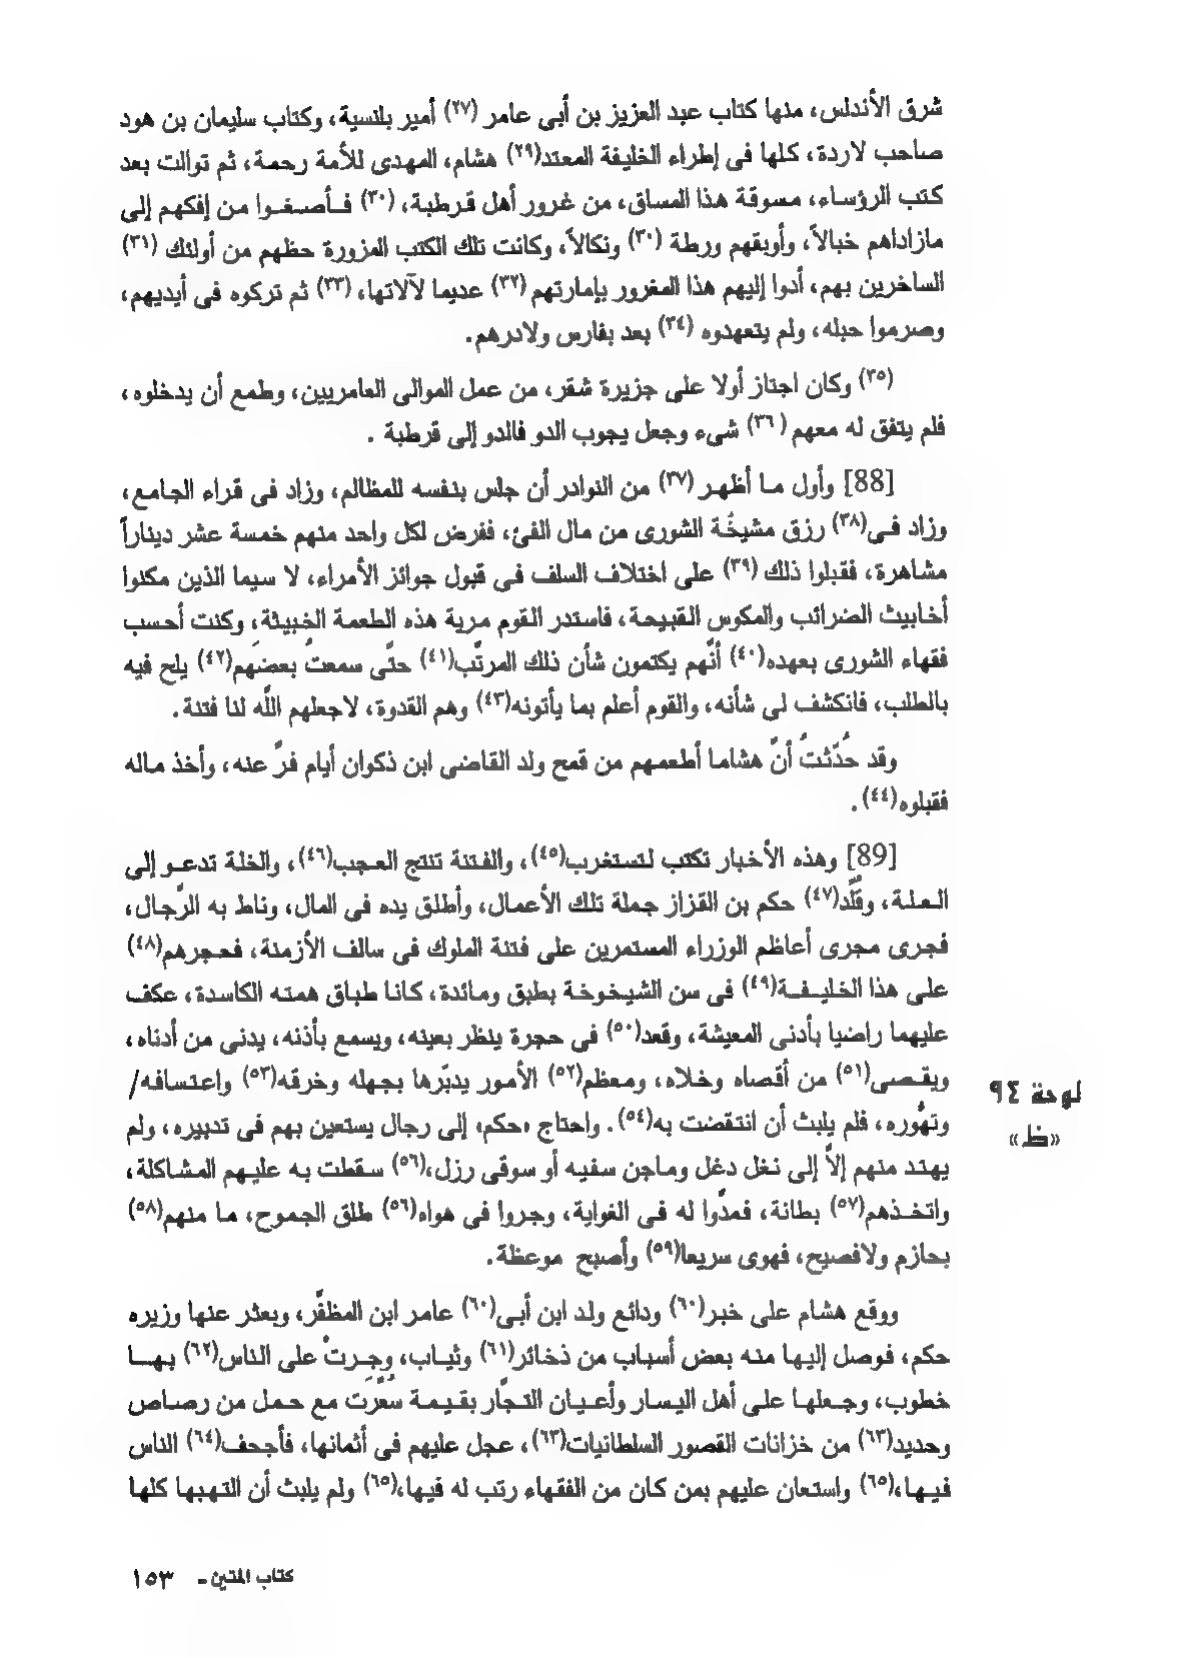 شرق الأندلس، منها كتاب عبد العزيز بن أبى عامر (٢٧) أمير بلنسية، وكتاب سليمان بن هود
صاحب لاردة، كلها فى إطراء الخليفة المعتد(٢٩) هشام، المهدى للأمة رحمة، ثم توالت بعد
كتب الرؤساء، مسوقة هذا المساق، من غرور أهل قرطبة، (٣٠) فأصغوا من إفكهم إلى
مازاداهم خبالاً، وأوبقهم ورطة (٣٠) ونكالاً، وكانت تلك الكتب المزورة حظهم من أولئك (٣١)
الساخرين بهم، أدوا إليهم هذا المغرور بإمارتهم (٣٢) عديما لآلاتها، (٣٣) ثم تركوه فى أيديهم،
وصرموا حبله، ولم يتعهدوه (٣٤) بعد بفارس ولادرهم.
(٣٥) وكان اجتاز أولا على جزيرة شقر، من عمل الموالى العامريين، وطمع أن يدخلوه،
فلم يتفق له معهم (٣٦) شىء وجعل يجوب الدو فالدو إلى قرطبة .
[88] وأول ما أظهر (٣٧) من النوادر أن جلس بنفسه للمظالم، وزاد فى قراء الجامع،
وزاد فى(٣٨) رزق مشيخُة الشورى من مال الفئ، ففرض لكل واحد منهم خمسة عشر ديناراً
مشاهرة، فقبلوا ذلك (٣٩) على اختلاف السلف فى قبول جوائز الأمراء، لا سيما الذين مكنوا
أخابيث الضرائب والمكوس القبيحة، فاستدر القوم مرية هذه الطعمة الخبيثة، وكنت أحسب
فقهاء الشورى بعهده(٤٠) أنَّهم يكتمون شأن ذلك المرتَّب(٤١) حتَّى سمعتُ بعضَهم(٤٢) يلح فيه
بالطلب، فانكشف لى شأنه، والقوم أعلم بما يأتونه(٤٣) وهم القدوة، لاجعلهم اللَّه لنا فتنة.
وقد حُدّثتُ أنَّ هشاما أطعمهم من قمح ولد القاضى ابن ذكوان أيام فرَّ عنه، وأخذ ماله
فقبلوه(٤٤).
[89] وهذه الأخبار تكتب لتستغرب(٤٥)، والفتنة تنتج العجب(٤٦)، والخلة تدعو إلى
العلة، وقلَّد(٤٧) حكم بن القزاز جملة تلك الأعمال، وأطلق يده فى المال، وناط به الرِّجال،
فجرى مجرى أعاظم الوزراء المستمرين على فتنة الملوك فى سالف الأزمنة، فحجرهم(٤٨)
على هذا الخليفة(٤٩) فى سن الشيخوخة بطبق ومائدة، كانا طباق همته الكاسدة، عكف
عليهما راضيا بأدنى المعيشة، وقعد(٥٠) فى حجرة ينظر بعينه، ويسمع بأذنه، يدنى من أدناه،
ويقصى(٥١) من أقصاه وخلاه، ومعظم(٥٢) الأمور يدبّرها بجهله وخرقه(٥٣) واعتسافه/
وتهُّوره، فلم يلبث أن انتقضت به(٥٤). واحتاج «حكم» إلى رجال يستعين بهم فى تدبيره، ولم
يهتد منهم إلاَّ إلى نغل دغل وماجن سفيه أو سوقى رزل،(٥٦) سقطت به عليهم المشاكلة،
واتخذهم(٥٧) بطانة، فمدُّوا له فى الغواية، وجروا فى هواه(٥٦) طلق الجموح، ما منهم(٥٨)
بحازم ولافصيح، فهوى سريعا(٥٩) وأصبح موعظة.
ووقع هشام على خبر(٦٠) ودائع ولد ابن أبى(٦٠) عامر ابن المظفَّر، وبعثر عنها وزيره
حكم، فوصل إليها منه بعض أسباب من ذخائر(٦١) وثياب، وجرتْ على الناس(٦٢) بها
خطوب، وجعلها على أهل اليسار وأعيان التجَّار بقيمة سُعِّرَت مع حمل من رصاص
وحديد(٦٣) من خزانات القصور السلطانيات(٦٣)، عجل عليهم فى أثمانها، فأجحف(٦٤) الناس
فيها،(٦٥) واستعان عليهم بمن كان من الفقهاء رتب له فيها،(٦٥) ولم يلبث أن التهبها كلها
لوحة ٩٤
«ظ»
كتاب المتين - ١٥٣